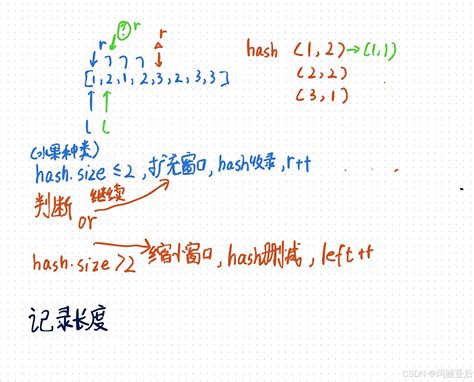 r r r
[1,2,1,2,3,2,3,3]
l l
hash (1,2)→(1,1)
(2,2)
(3,1)
(水果种类)
hash.size≤2,扩充窗口,hash收录,r++
判断 继续
or
hash.size>2 缩小窗口,hash删减,left++
记录长度
CSDN @玛丽亚后